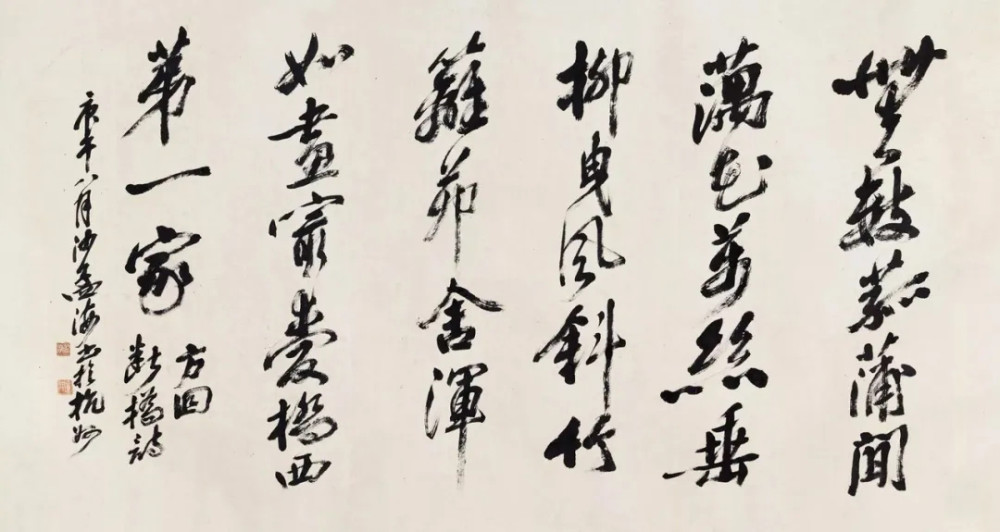 無數菰蒲間
藕花萬絲垂
柳曳風斜竹
籬茆舍渾
如畫最愛橋西
第一家
方回
斷橋詩
庚午八月沙孟海書於杭州